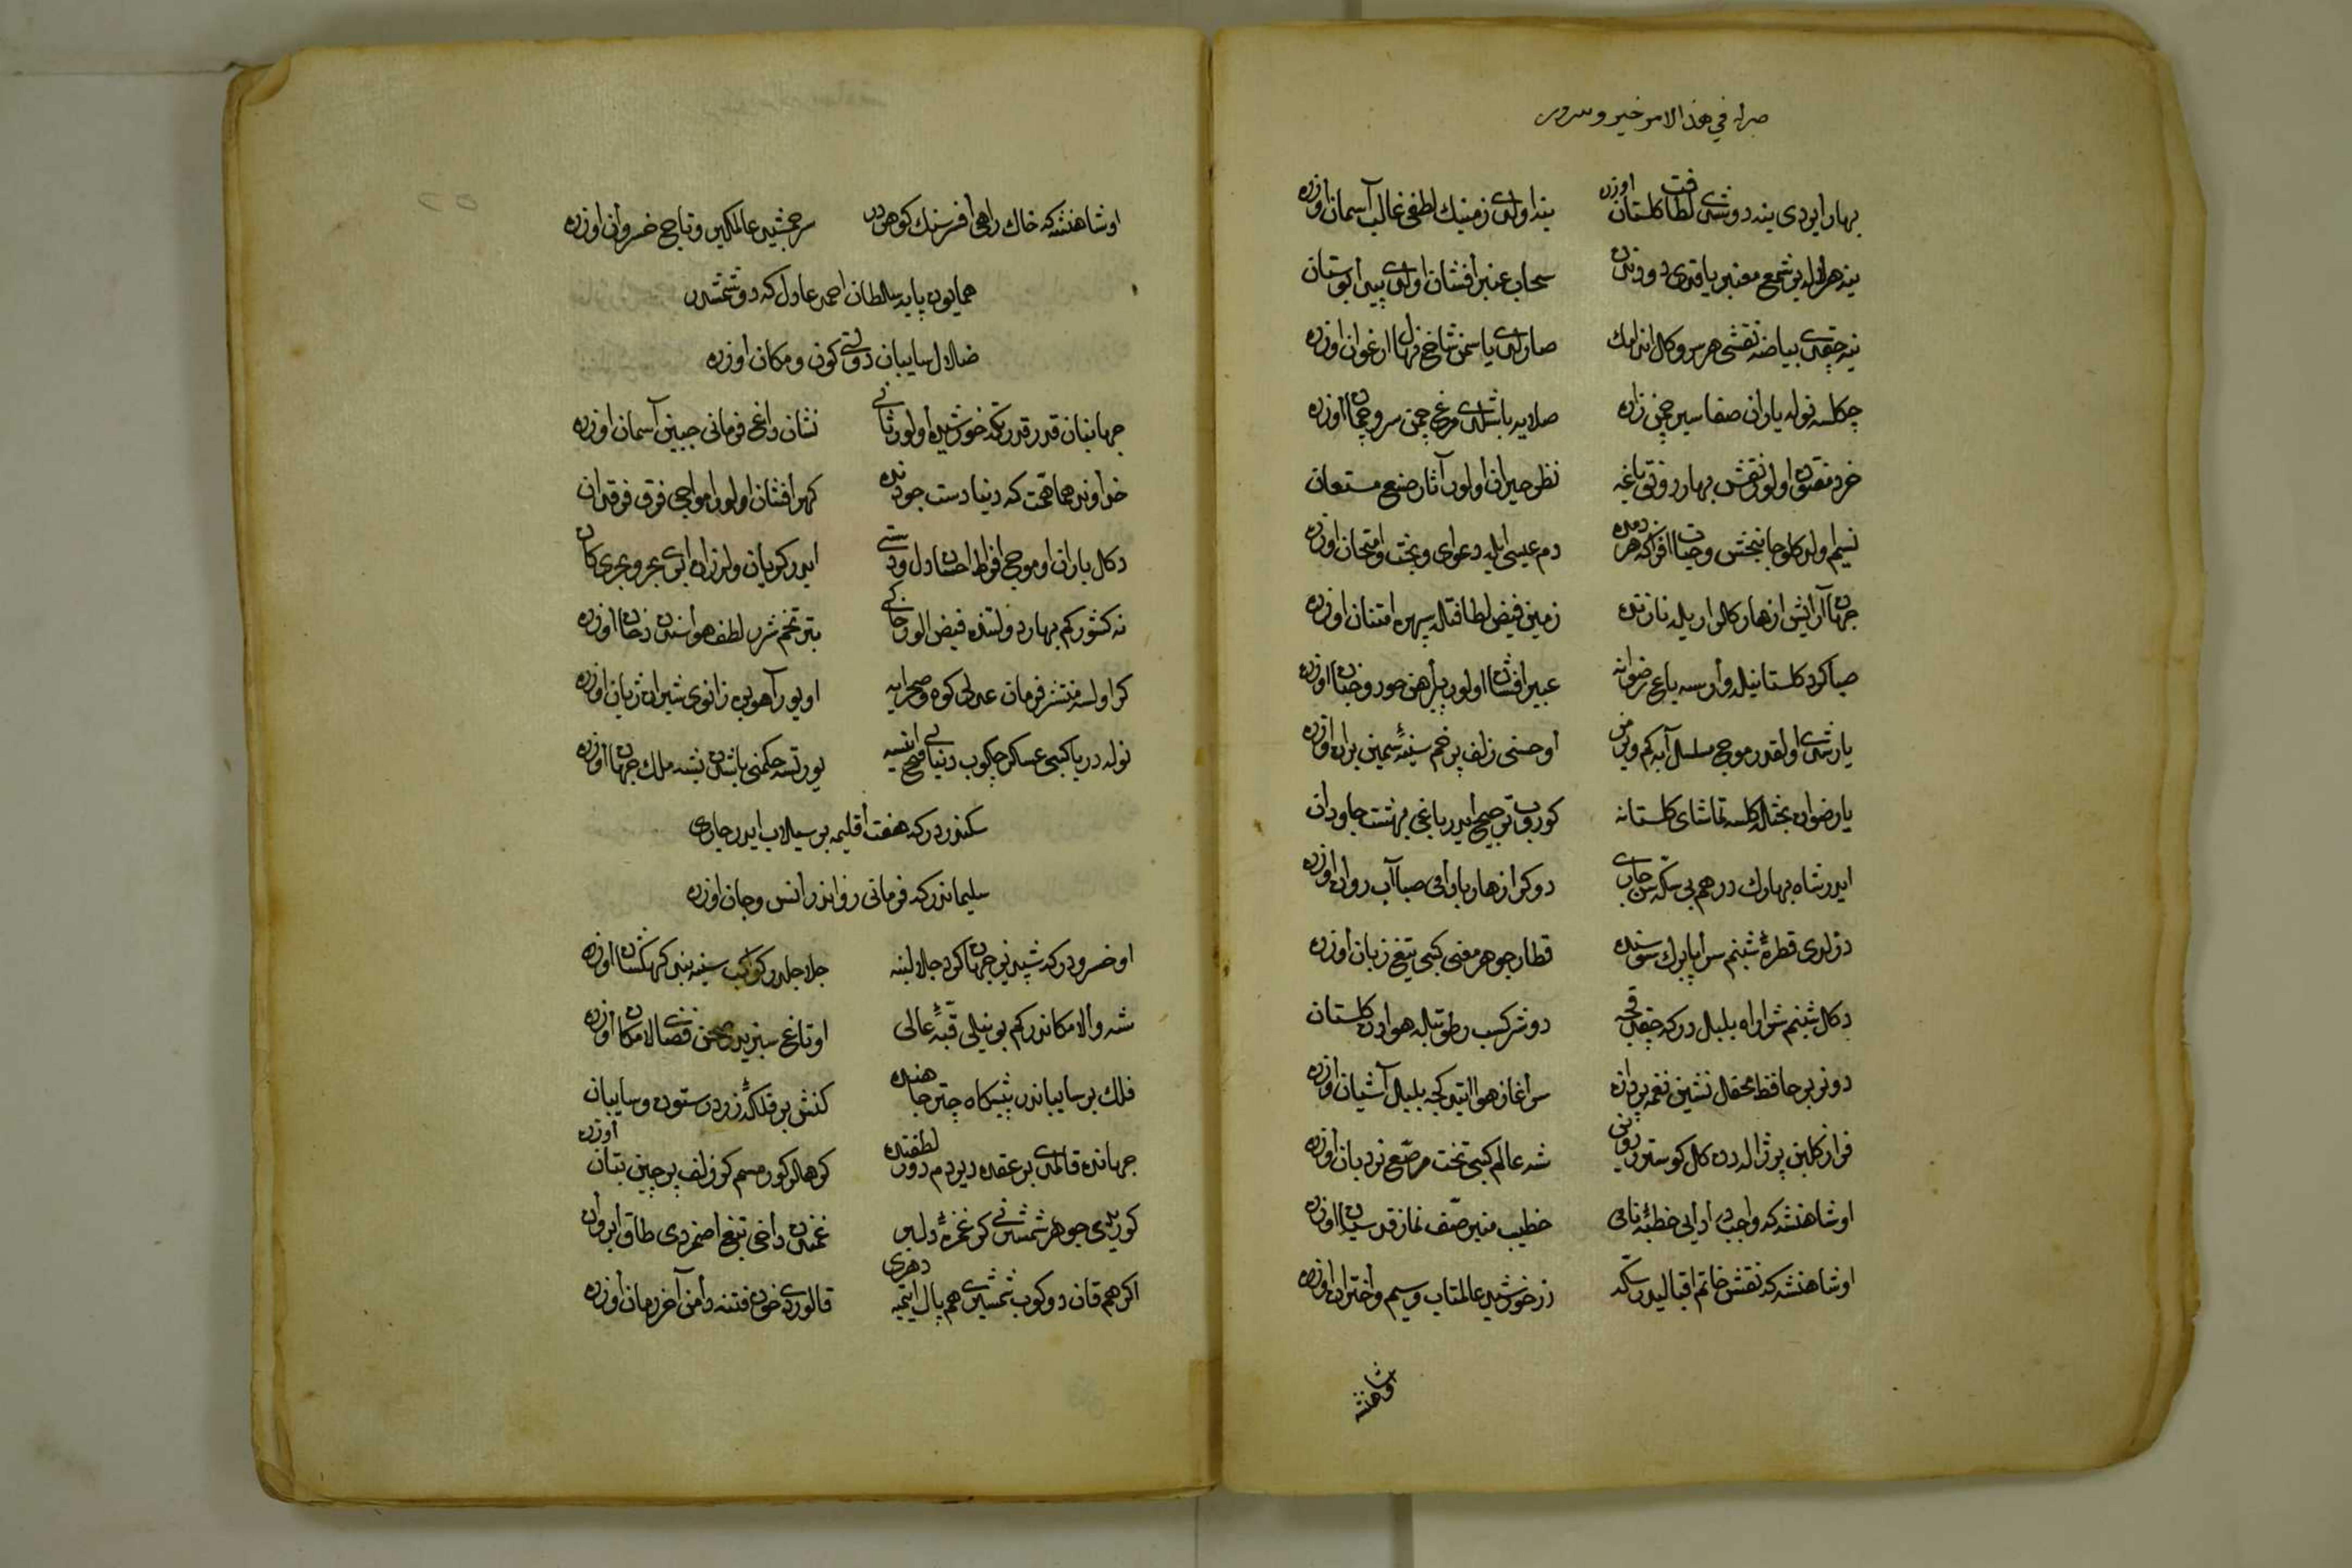 بهار ایردی ینه دوشدی لطافت گلستان اوزره ینه اولدی زمینك لطفی غالب آسمان اوزره
ینه هر لاله بر شمع معنبر یاقدی دودندن سحاب عنبر افشان اولدی پیدا بوستان
ینه چقدی بیاضه نقشی هر سرو گل اندامك صارلدی یاسمن شاخ نهال ارغوان اوزره
چكلسه نوله یاران صفا سیر چمنزاره صلایه باشلدی مرغ چمن سرو چمان اوزره
خرد مفتون اولور نقش بهار رونق باغه نظر حیران اولور آثار صنع مستعان
نسیم اولدكلو جانبخش و حیات افزا كه هر دمده دم عیسی ایله دعوای و بحث و امتحان اوزره
جهان آرایش ازهار گلزار یله نازنده زمین فیض لطافتله سپهره امتنان اوزره
صبا گرد گلستانیله وارسه باغ رضوانه عبیر افشان اولور پیراهن حور و جنان اوزره
یارشدی اولقدر موج مسلسل آبه كم ویرمز او حسنی زلف پر خم سینۀ سیمین بران اوزره
یا رضوان بحثله گلسه تماشای گلستانه كوروب ترجیح ایدر باغی بهشت جاودان
ایدر شاه بهارك درهم بی سكه سن جاری دوكر ازهار بادامی صبا آب روان اوزره
دزلدی قطرۀ شبنم سراپا برك سوسنده قطار جوهر معنی كبی تیغ زبان اوزره
دگل شبنم شرار آه بلبل در كه چقدقجه دوشر كسب رطوبتله هوادن گلستان
دونر بر حافظ محفل نشین نغمه پردازه سرآغاز هوا ایتدكجه بلبل آشیان اوزره
فراز گلبن پر ژاله دن گل كوستروب روین شه عالم كبی تخت مرصع نردبان اوزره
او شاهنشه كه واجبدر ادای خطبۀ نامی خطیب منبر صف نماز قدسیان اوزره
او شاهنشه كه نقش خاتم اقبالیدر سكه زر خورشید عالمتاب و سیم اختران اوزره
او شاهنشه
او شاهنشه كه خاك راهی افسرنك گوهردر سر جمشید عالمگیر و تاج خسروان اوزره
همایون پایه سلطان احمد عادل كه دوشمشدر
ضلال سایبان دولتی كون و مكان اوزره
جهانبان قدر قدرتكه خورشید اولور ثانی نشان داغ فرمانی جبین آسمان اوزره
خداوند هما همت كه دنیا دست جودنده گهر افشان اولور امواجی فوق فرقدان
دگل باران او موج افراط احسان دل و دستی ایدر گویان و لرزان ابری بحر و بحری كان
نه كشور كم بهار دولتنده فیض الور جانی بتر تخم شرر لطف هواسندن دخان اوزره
گر اولسه منتشر فرمان عدلی كوه و صحرایه اویور آهوبره زانوی شیران ژیان اوزره
نوله دریا كبی عسكر چكوب دنیایی فتح ایتسه یورتسه حكمنی باشدن بشه ملك جهان اوزره
سكندردر كه هفت اقلیمه بر سیلاب ایدر جاری
سلیماندر كه فرمانی رواندر انس و جان اوزره
او خسرودر كه شبدیز جهانگرد جلالینه جلاجلدر كواكب سینه بند كهكشان اوزره
شه والا مكاندر كم بو نیلی قبۀ عالی اوتاغ سبزیدر صحن فضای لامكان اوزره
فلك بر سایباندر پیشگاه چتر جاهنده گنش بر فلكۀ زردر ستون و سایبان
جهانده قالمدی بر عقده دیردم دور لطفنده گوهلر كورمسم كر زلف پرچین بتان اوزره
كوریلدی جوهر شمشیرنی گر غمزۀ دلبر غمندن داخی تیغ اصمزدی طاق ابروان
اگر هم قان دوكوب شمشیری هم پاك ایتمیه دهری قالوردی خون فتنه دامن آخر زمان اوزره